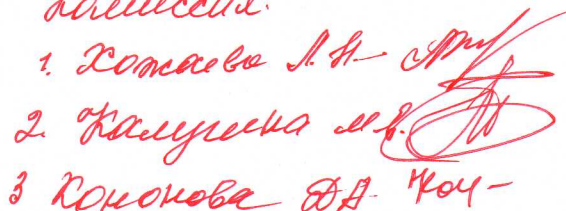 Комиссия:
1. Хожаева Л.Н.
2. Калугина М.В.
3 Кононова Д.Д.